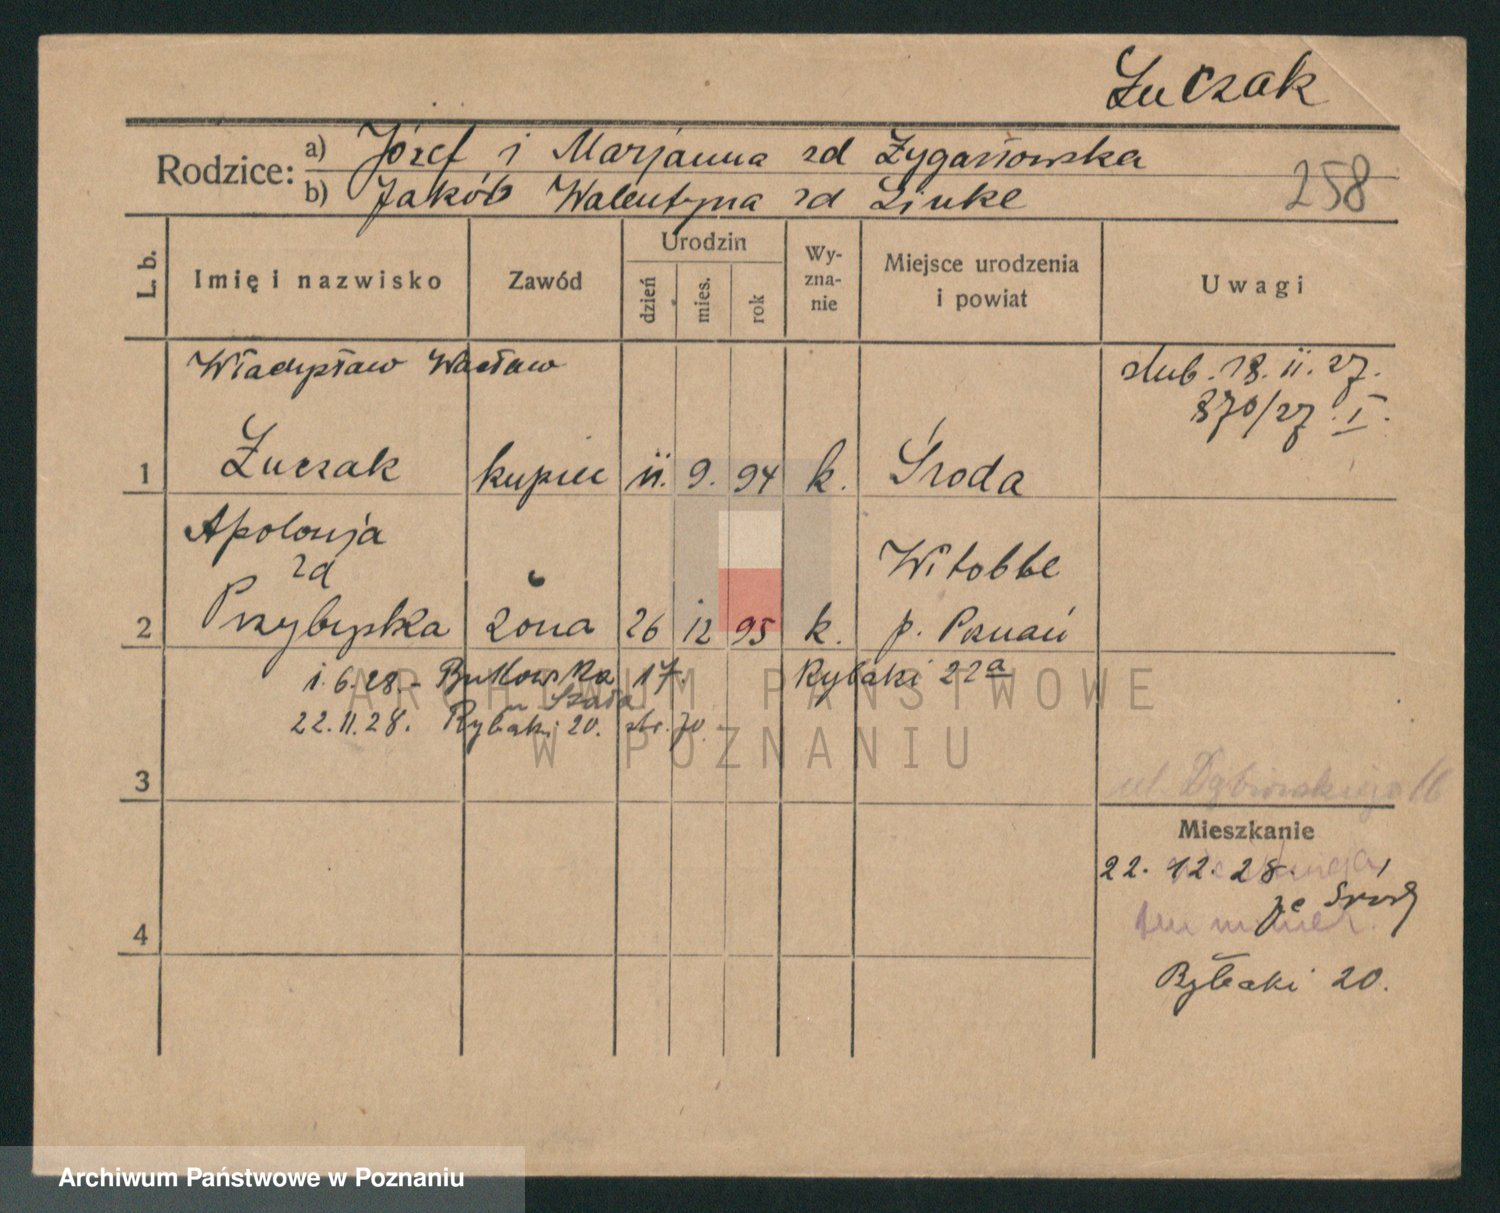 Łuczak
Rodzice: a) Józef i Marjanna zd Zygarłowska
b) Jakób Walentyna zd Linke
258
L. b. Imię i nazwisko Zawód Urodzin dzień mies. rok Wyznanie Miejsce urodzenia i powiat Uwagi
Władysław Wacław
ślub. 18. II. 27.
870/27 I.
1 Łuczak kupiec 11. 9. 94 k. Środa
Apolonja
zd
Witobbe
2 Przybylska żona 26 12 95 k. p. Poznań
1.6.28.- Bukowska 17. Rybaki 22a
u Szała
22.11.28. Rybaki 20. str. 70.
3
ul. Dąbrowskiego 16
Mieszkanie
22. 12. 28.
ze Środy
4
Rybaki 20.
ARCHIWUM PAŃSTWOWE
W POZNANIU
Archiwum Państwowe w Poznaniu